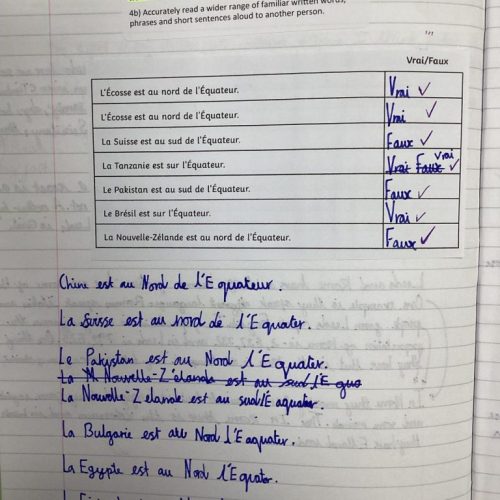 4b) Accurately read a wider range of familiar written words,
phrases and short sentences aloud to another person.
Vrai/Faux
L'Écosse est au nord de l'Équateur. Vrai
L'Écosse est au nord de l'Équateur. Vrai
La Suisse est au sud de l'Équateur. Faux
La Tanzanie est sur l'Équateur. Vrai Faux Vrai
Le Pakistan est au sud de l'Équateur. Faux
Le Brésil est sur l'Équateur. Vrai
La Nouvelle-Zélande est au nord de l'Équateur. Faux
Chine est au Nord de l'Equateur.
La Suisse est au nord de l'Equater.
Le Pakistan est au Nord l'Equater.
La M Nouvelle-Z'elande est au sud l'E qua
La Nouvelle-Zelande est au sud l'E aquater.
La Bulgarie est au Nord l'E aquater.
La Egypte est au Nord l'Equater.